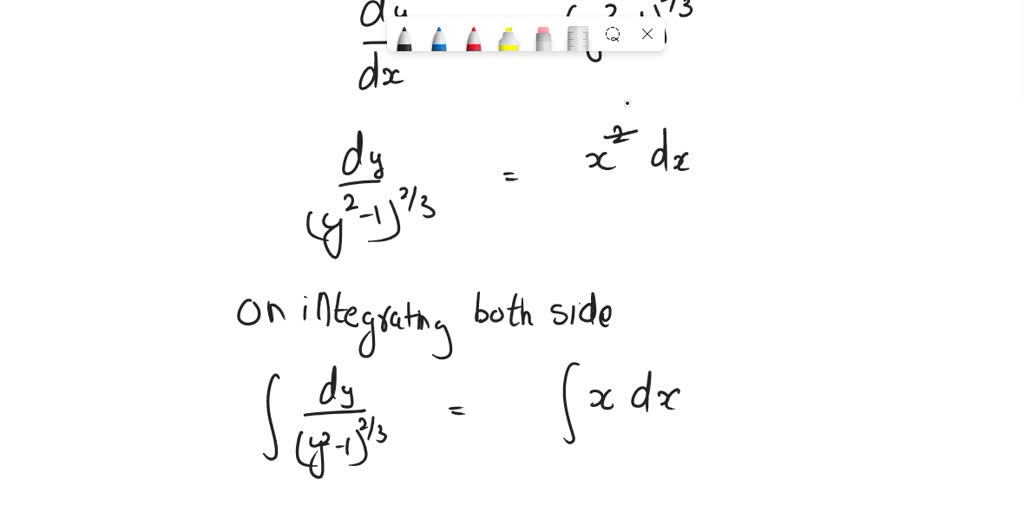 dy/dx (y²-1)^2/3
dy/(y²-1)^2/3 = x² dx
on integrating both side
∫ dy/(y²-1)^2/3 = ∫ x dx